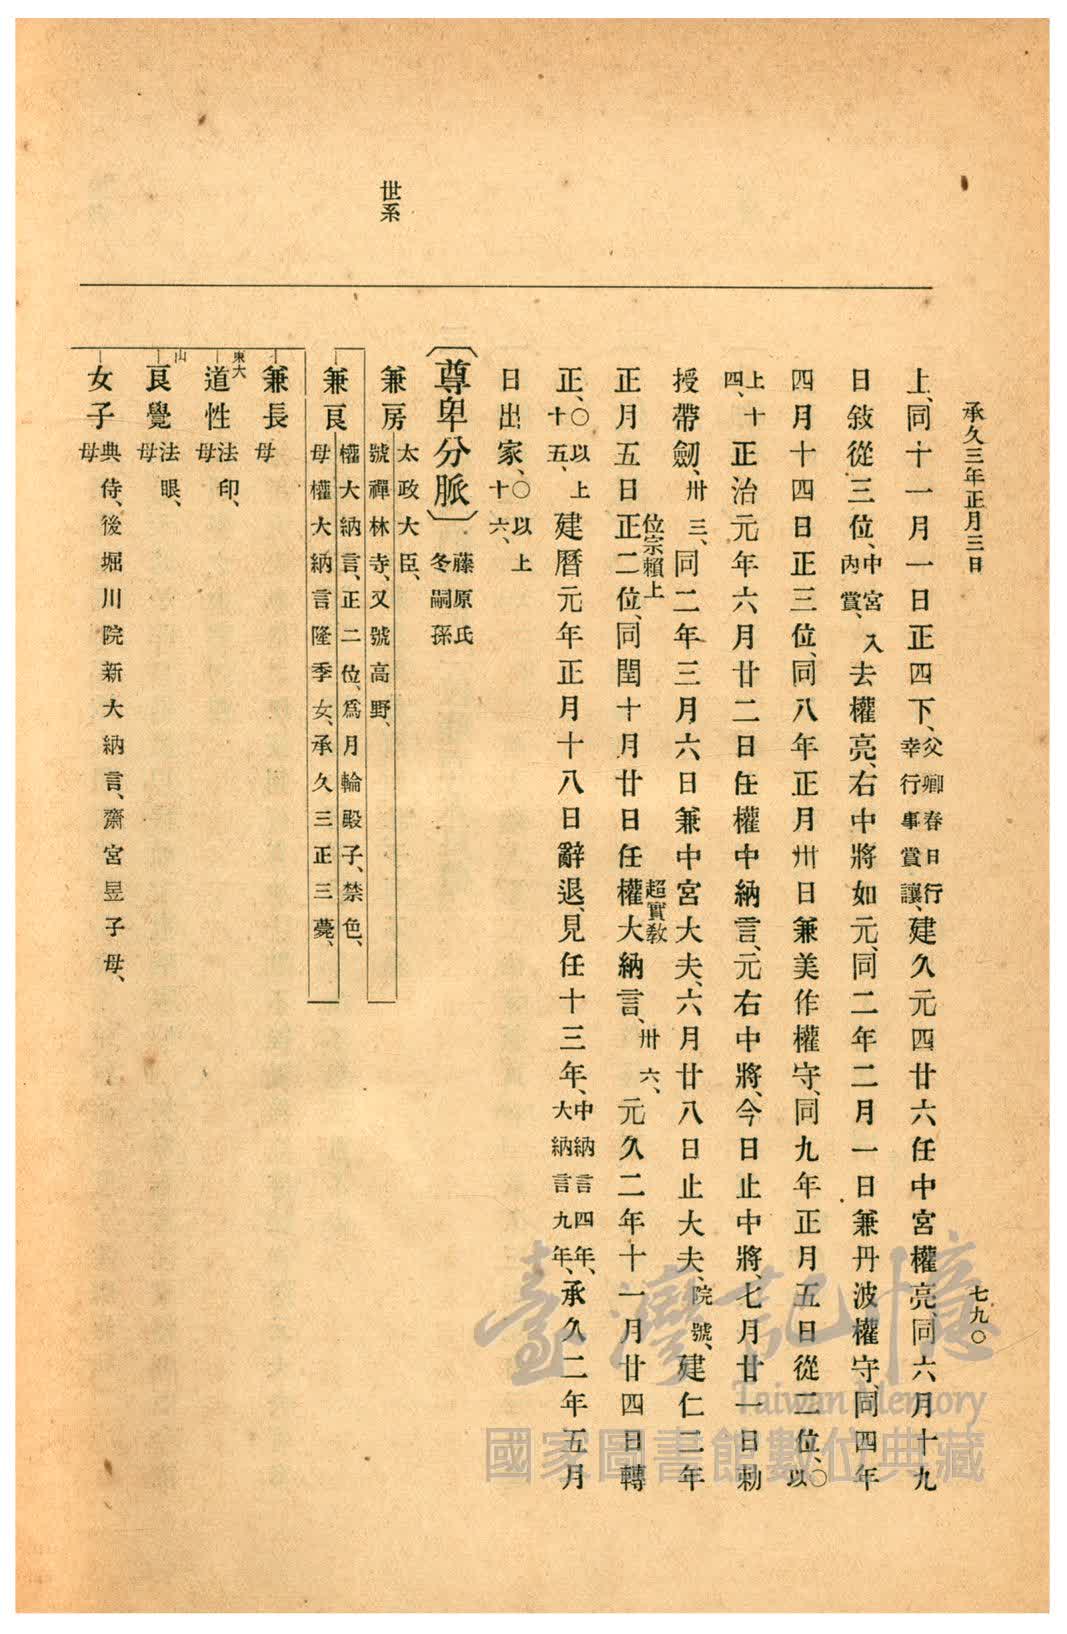 承久三年正月三日
七九〇
上、同十一月一日正四下、父卿春日行幸行事賞讓、建久元四廿六任中宮權亮、同六月十九
日敍從三位、中宮入內賞、去權亮、右中將如元、同二年二月一日兼丹波權守、同四年
四月十四日正三位、同八年正月卅日兼美作權守、同九年正月五日從二位、〇以
上十四、正治元年六月廿二日任權中納言、元右中將、今日止中將、七月廿一日勅
授帶劔、卅三、同二年三月六日兼中宮大夫、六月廿八日止大夫、院號、建仁二年
正月五日正二位、位宗賴上同閏十月廿日任權大納言、超實敎卅六、元久二年十一月廿四日轉
正、〇以上十五、建曆元年正月十八日辭退、見任十三年、中納言四年、大納言九年、承久二年五月
日出家、〇以上十六、
世系
〔尊卑分脈〕藤原氏冬嗣孫
兼房 太政大臣、號禪林寺、又號高野、
兼良 權大納言、正二位、爲月輪殿子、禁色、母權大納言隆季女、承久三正三薨、
兼長 母
東大 道性 法印、母
山 良覺 法眼、母
女子 典侍、後堀川院新大納言、齋宮昱子母、母
臺灣記憶
Taiwan Memory
國家圖書館數位典藏